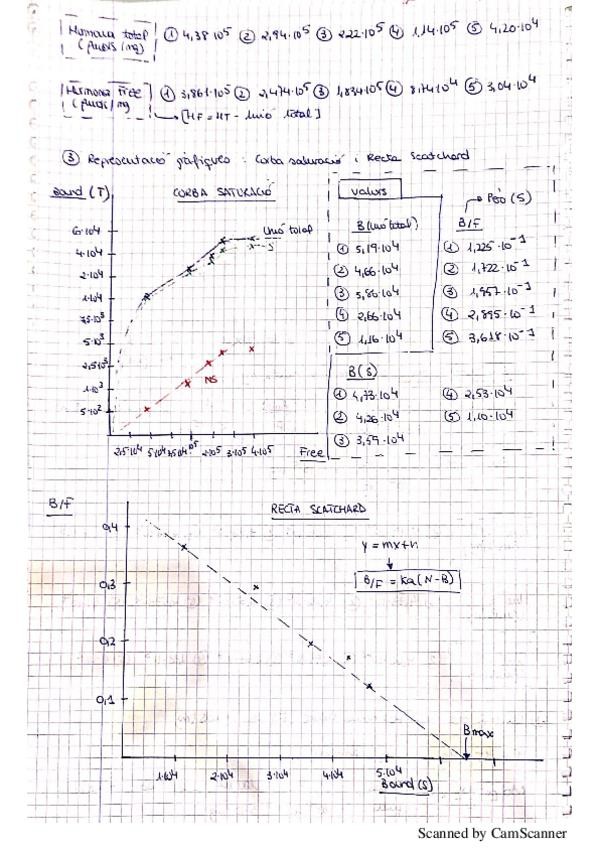 Hormona total ① 4,38·10⁵ ② 2,94·10⁵ ③ 2,22·10⁵ ④ 1,14·10⁵ ⑤ 4,20·10⁴
Hormona free ① 3,861·10⁵ ② 2,474·10⁵ ③ 1,834·10⁵ ④ 8,74·10⁴ ⑤ 3,04·10⁴
→ [HF = HT - unió total]
③ Representació gràfiques : Corba saturació i Recta Scatchard
Bound (T)
CORBA SATURACIÓ
6·10⁴
4·10⁴
2·10⁴
1·10⁴
7,5·10³
5·10³
2,5·10³
1·10³
5·10²
Unió total
S
NS
2,5·10⁴ 5·10⁴ 7,5·10⁴ 10⁵ 2·10⁵ 3·10⁵ 4·10⁵ Free
valors
B (unió total)
① 5,19·10⁴
② 4,66·10⁴
③ 3,86·10⁴
④ 2,66·10⁴
⑤ 1,16·10⁴
→ Però (S)
B/F
① 1,225·10⁻¹
② 1,722·10⁻¹
③ 1,957·10⁻¹
④ 2,895·10⁻¹
⑤ 3,618·10⁻¹
B (S)
① 4,73·10⁴ ④ 2,53·10⁴
② 4,26·10⁴ ⑤ 1,10·10⁴
③ 3,59·10⁴
B/F
RECTA SCATCHARD
y = mx+n
B/F = Ka (N-B)
0,4
0,3
0,2
0,1
Bmax
1·10⁴ 2·10⁴ 3·10⁴ 4·10⁴ 5·10⁴
Bound (S)
Scanned by CamScanner